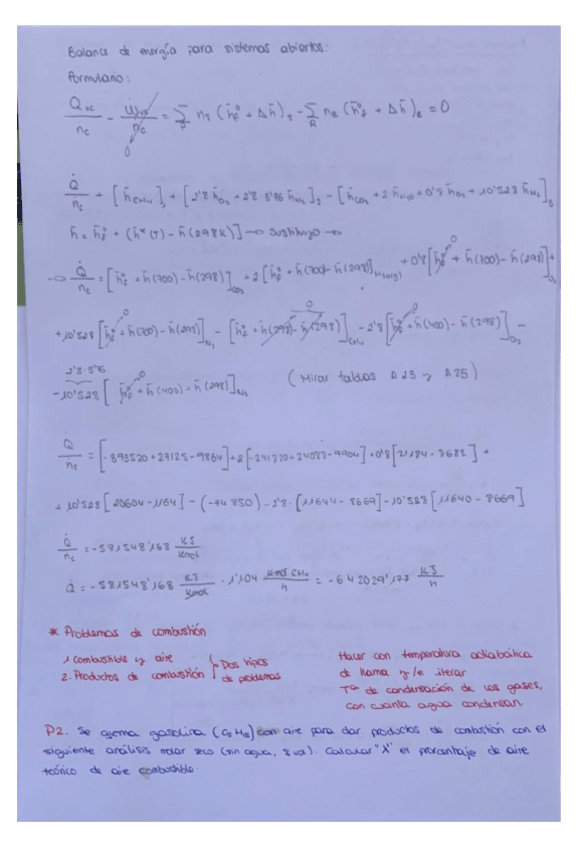 Balance de energía para sistemas abiertos:
Formulario:
Q̇vc/nc - Ẇvc/nc = Σ_P ns (h̄f° + Δh̄)s - Σ_R ne (h̄f° + Δh̄)e = 0
0
Q̇/nc + [h̄CH4]1 + [2'8 h̄O2 + 2'8·3'76 h̄N2]2 - [h̄CO2 + 2 h̄H2O + 0'8 h̄O2 + 10'528 h̄N2]3
h̄ = h̄f° + (h̄°(T) - h̄(298K)] → sustituyo →
→ Q̇/nc = [h̄f° + h̄(700) - h̄(298)]CO2 + 2[h̄f° + h̄(700) - h̄(298)]H2O(g) + 0'8[h̄f° + h̄(700) - h̄(298)]O2 +
+ 10'528[h̄f° + h̄(700) - h̄(298)]N2 - [h̄f° + h̄(298) - h̄(298)]CH4 - 2'8[h̄f° + h̄(400) - h̄(298)]O2 -
2'8·3'76
- 10'528[h̄f° + h̄(400) - h̄(298)]N2 (Mirar tablas A23 y A25)
Q̇/nc = [-393520 + 27125 - 9364] + 2[-241820 + 24088 - 9904] + 0'8[21184 - 8682] +
+ 10'528[20604 - ] - (-74850) - 2'8·[11644 - 8669] - 10'528[11640 - 8669]
Q̇/nc = -581548'168 KJ/Kmol
Q̇ = -581548'168 KJ/Kmol · 1'104 Kmol CH4/h = -642029'177 KJ/h
* Problemas de combustión
1 Combustible y aire
2. Productos de combustión } Dos tipos de problemas
Hacer con temperatura adiabática
de llama y/e iterar
Tª de condensación de los gases,
con cuanta agua condensan.
P2. Se quema gasolina (C8H18) con aire para dar productos de combustión con el
siguiente análisis molar seco (sin agua, % vol). Calcular "λ" el porcentaje de aire
teórico de aire combustible.